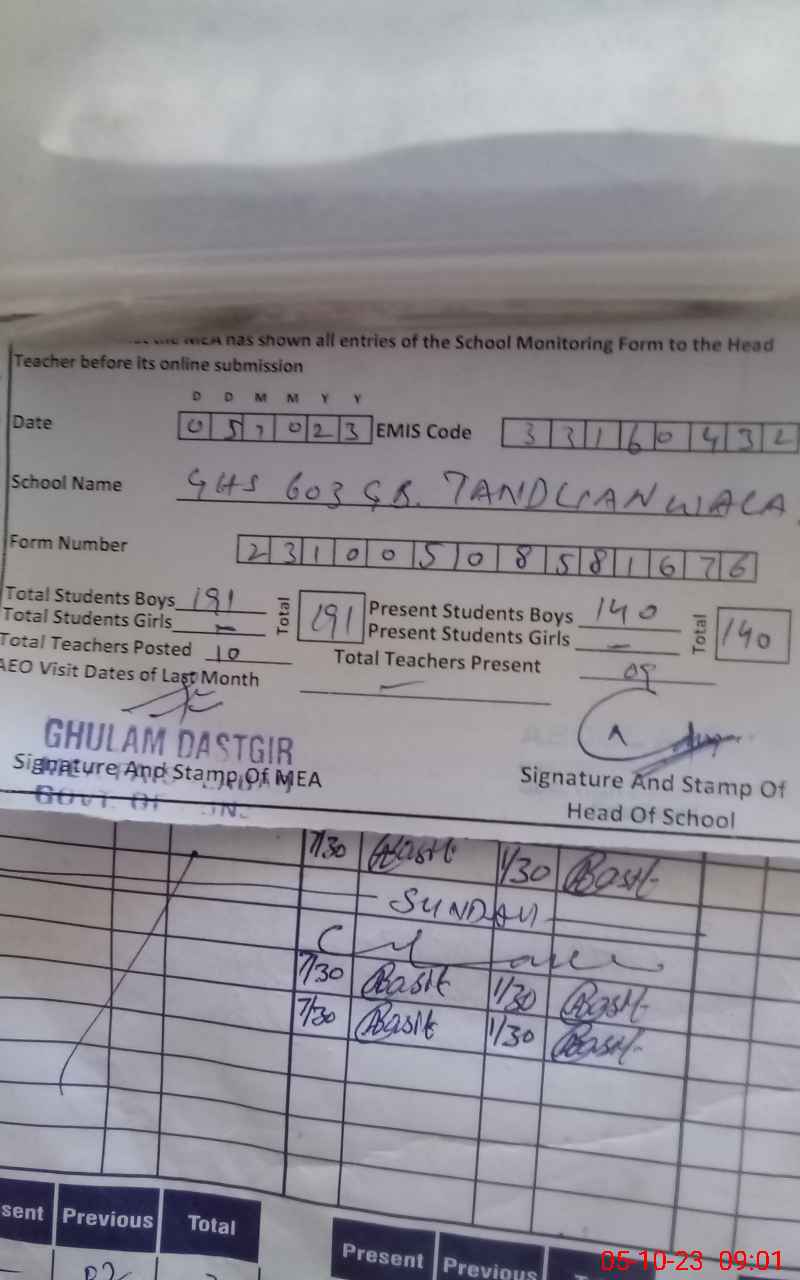 MEA has shown all entries of the School Monitoring Form to the Head
Teacher before its online submission
D D M M Y Y
Date 0 5 1 0 2 3 EMIS Code 3 3 1 6 0 4 3 2
School Name GHS 603 GB. TANDLIANWALA
Form Number 2 3 1 0 0 5 0 8 5 8 1 6 7 6
Total Students Boys 191 Total 191 Present Students Boys 140 Total 140
Total Students Girls - Present Students Girls -
Total Teachers Posted 10 Total Teachers Present 09
AEO Visit Dates of Last Month -
GHULAM DASTGIR
Signature And Stamp Of MEA Signature And Stamp Of
Head Of School
7/30 Basit 1/30 Basit
SUNDAY
7/30 Basit 1/30 Basit
7/30 Basit 1/30 Basit
sent Previous Total
Present Previous
05-10-23 09:01